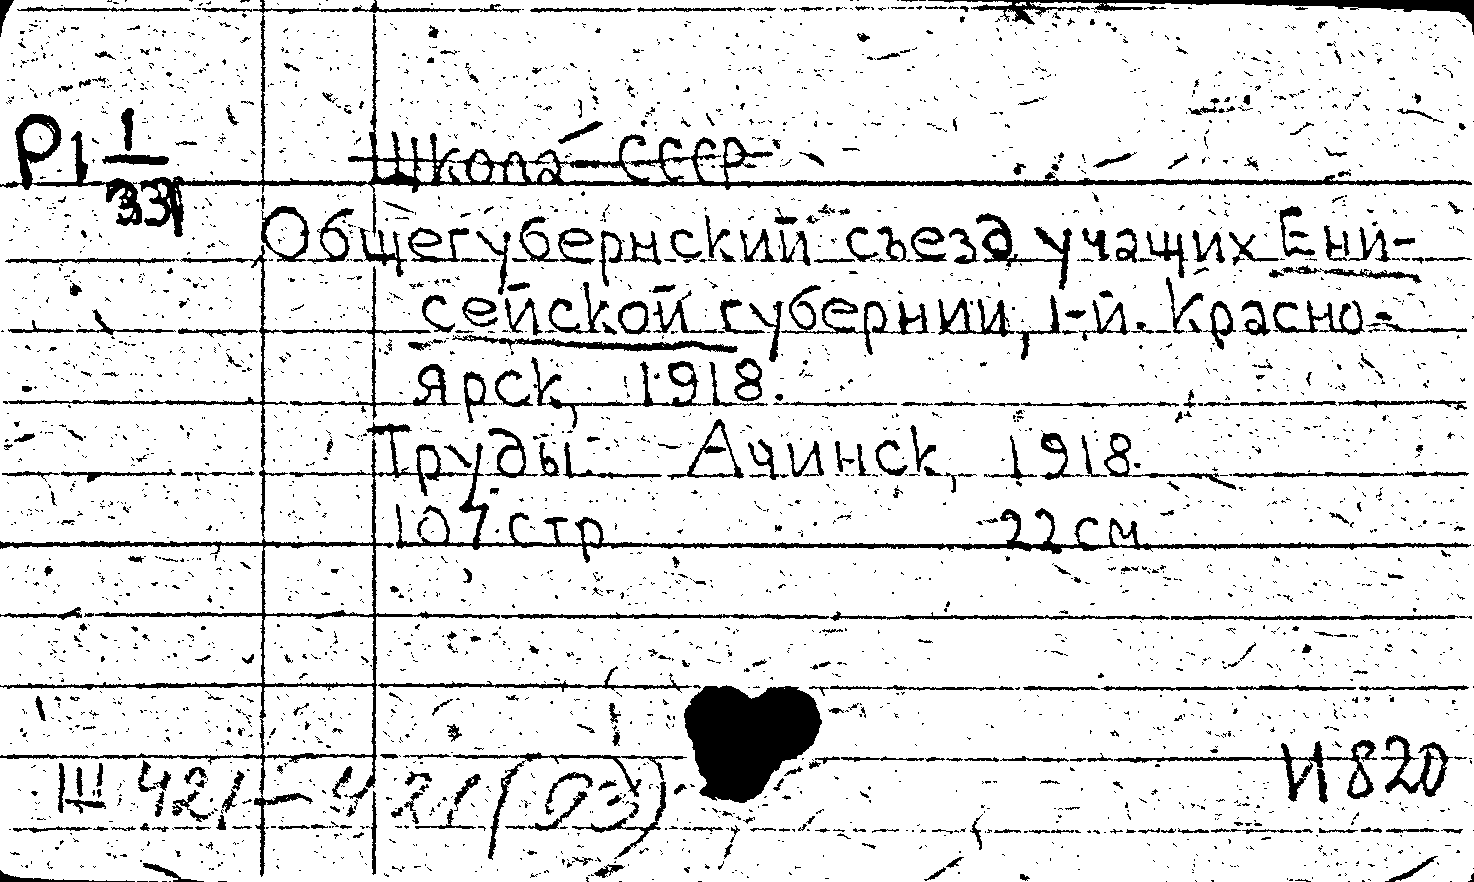 Р1 1/331
Школа СССР
Общегубернский съезд учащих Ени-
сейской губернии, 1-й. Красно-
ярск, 1918.
Труды. Ачинск, 1918.
107 стр. 22 см.
Ш 421-421(03)
И820